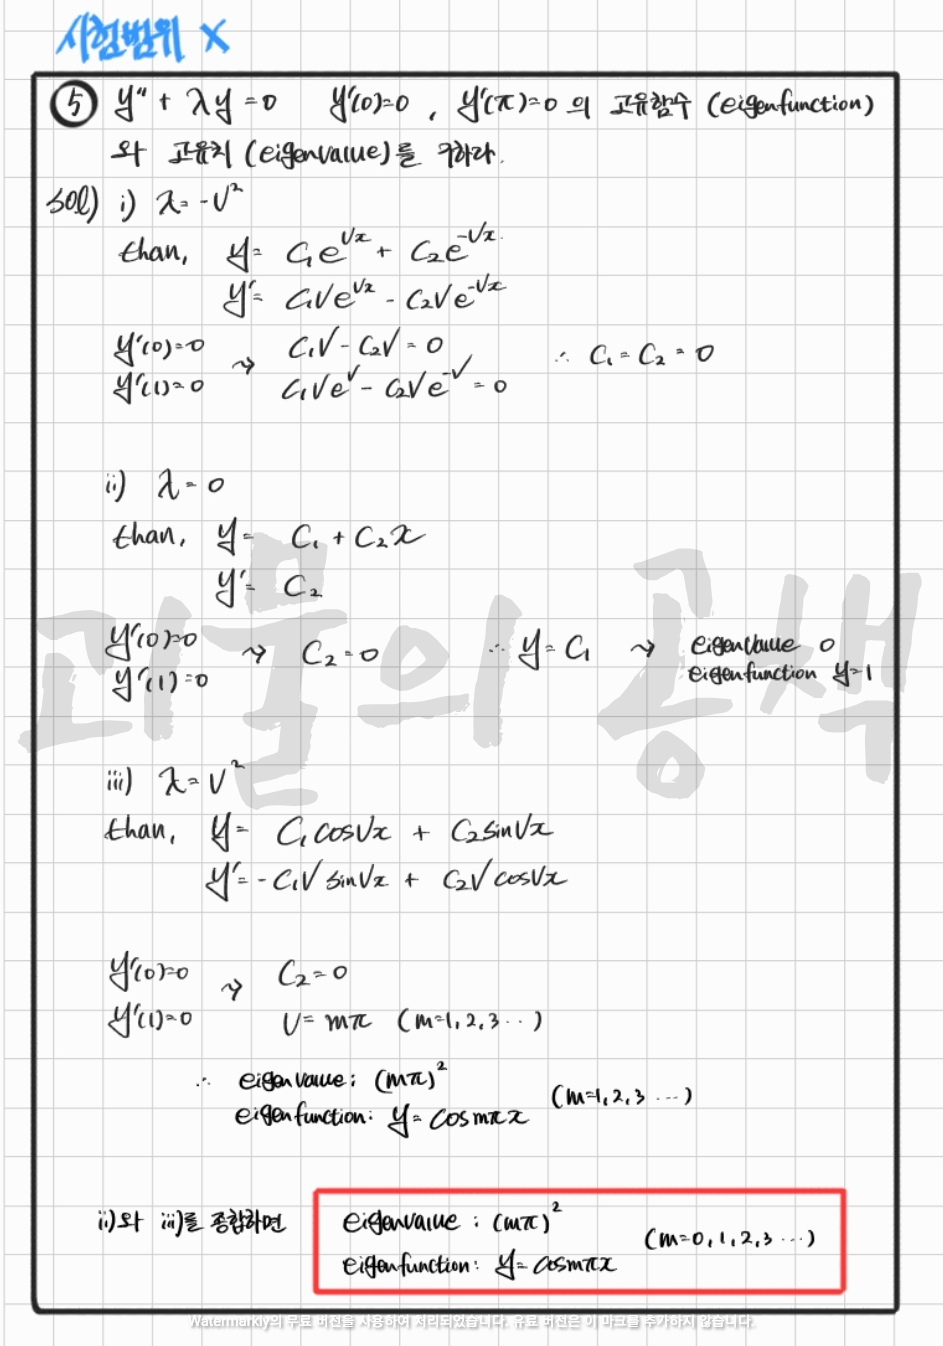 시험범위 X
⑤ y'' + λy = 0 y'(0)=0 , y'(π)=0 의 고유함수 (eigenfunction)
와 고유치 (eigenvalue)를 구하라.
sol) i) λ = -ν²
than, y = C₁e^νx + C₂e^-νx
y' = C₁νe^νx - C₂νe^-νx
y'(0)=0 → C₁ν - C₂ν = 0 ∴ C₁ = C₂ = 0
y'(1)=0 C₁νe^ν - C₂νe^-ν = 0
ii) λ = 0
than, y = C₁ + C₂x
y' = C₂
y'(0)=0 → C₂ = 0 ∴ y = C₁ → eigenvalue 0
y'(1)=0 eigenfunction y=1
iii) λ = ν²
than, y = C₁cosνx + C₂sinνx
y' = -C₁ν sinνx + C₂ν cosνx
y'(0)=0 → C₂ = 0
y'(1)=0 ν = mπ (m=1,2,3··)
∴ eigenvalue : (mπ)²
eigenfunction : y = cosmπx (m=1,2,3 ···)
ii)와 iii)를 종합하면 eigenvalue : (mπ)²
eigenfunction : y = cosmπx (m=0,1,2,3 ···)
괴물의 공책
Watermarkly의 무료 버전을 사용하여 처리되었습니다. 유료 버전은 이 마크를 추가하지 않습니다.